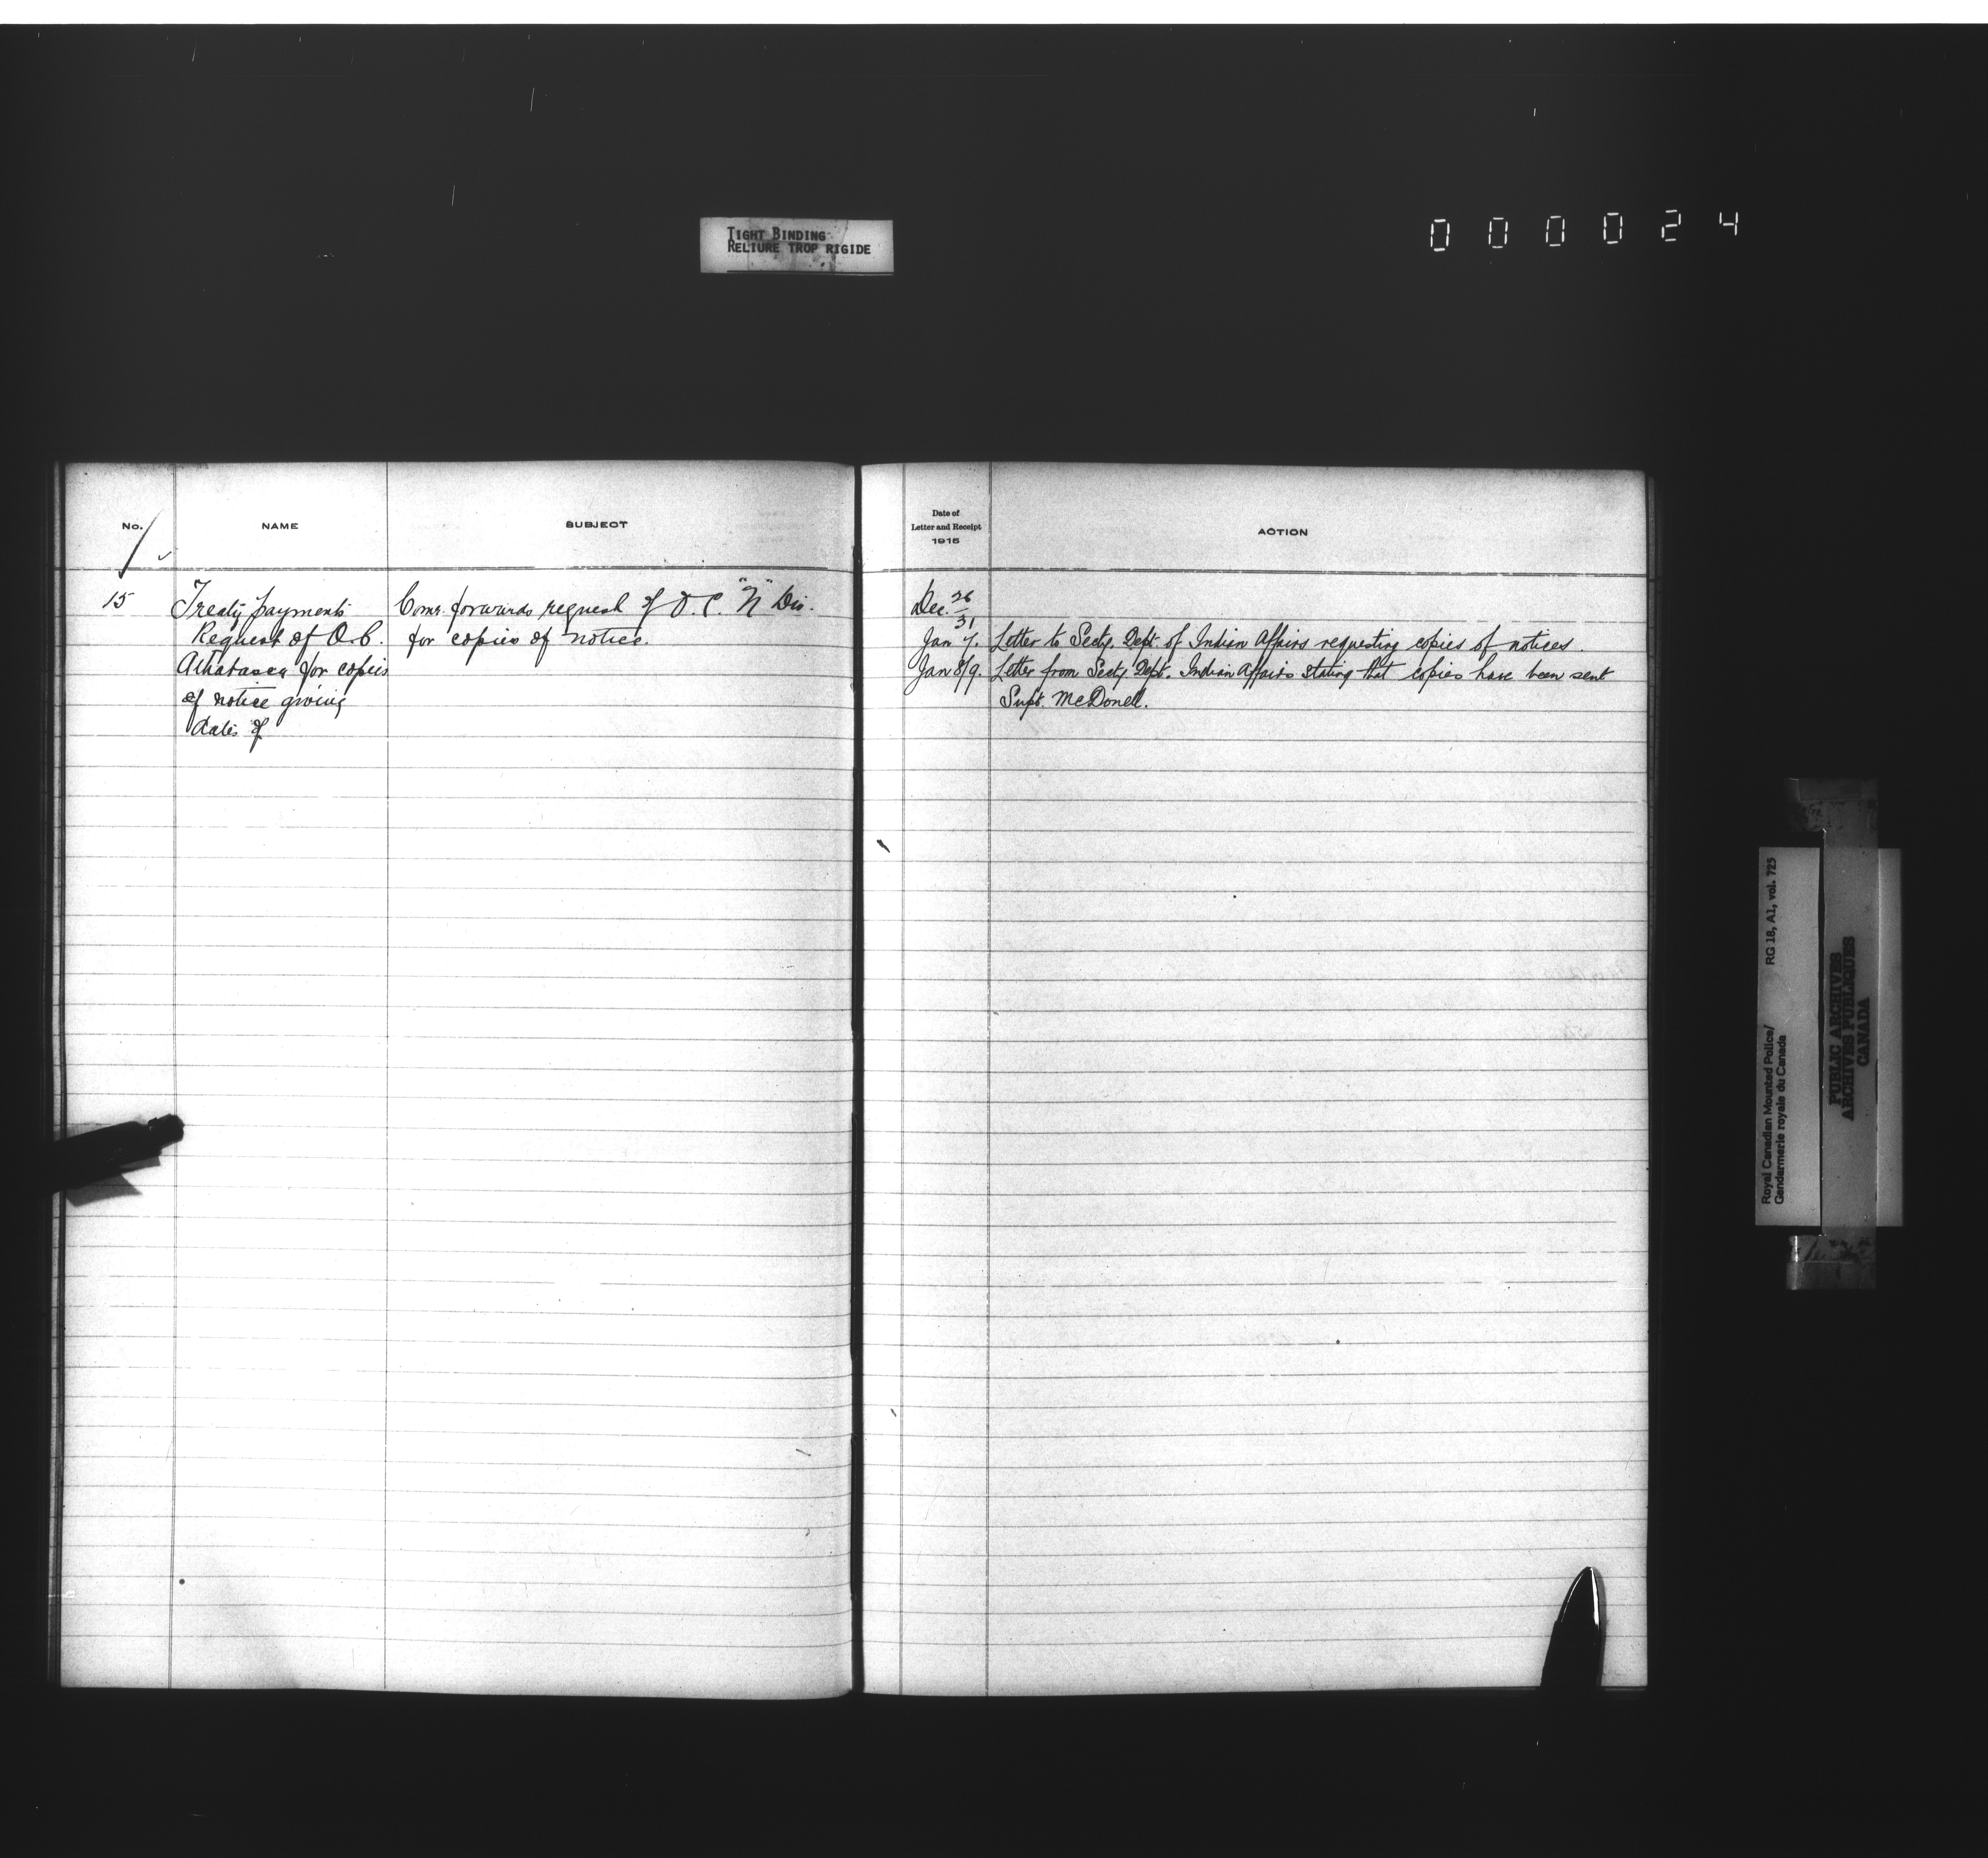 TIGHT BINDING
RELIURE TROP RIGIDE
000024
No.
NAME
SUBJECT
15
Treaty payments
Request of O.C.
Athabasca for copies
of notice giving
dates of
Comr. forwards request of O.C. "N" Div.
for copies of notice.
Date of
Letter and Receipt
1915
ACTION
Dec. 26/31
Jan 7. Letter to Secty. Dept. of Indian Affairs requesting copies of notices.
Jan 8/9. Letter from Secty. Dept. Indian Affairs stating that copies have been sent
Supt. McDonell.
Royal Canadian Mounted Police/ RG 18, A1, vol. 725
Gendarmerie royale du Canada
PUBLIC ARCHIVES
ARCHIVES PUBLIQUES
CANADA